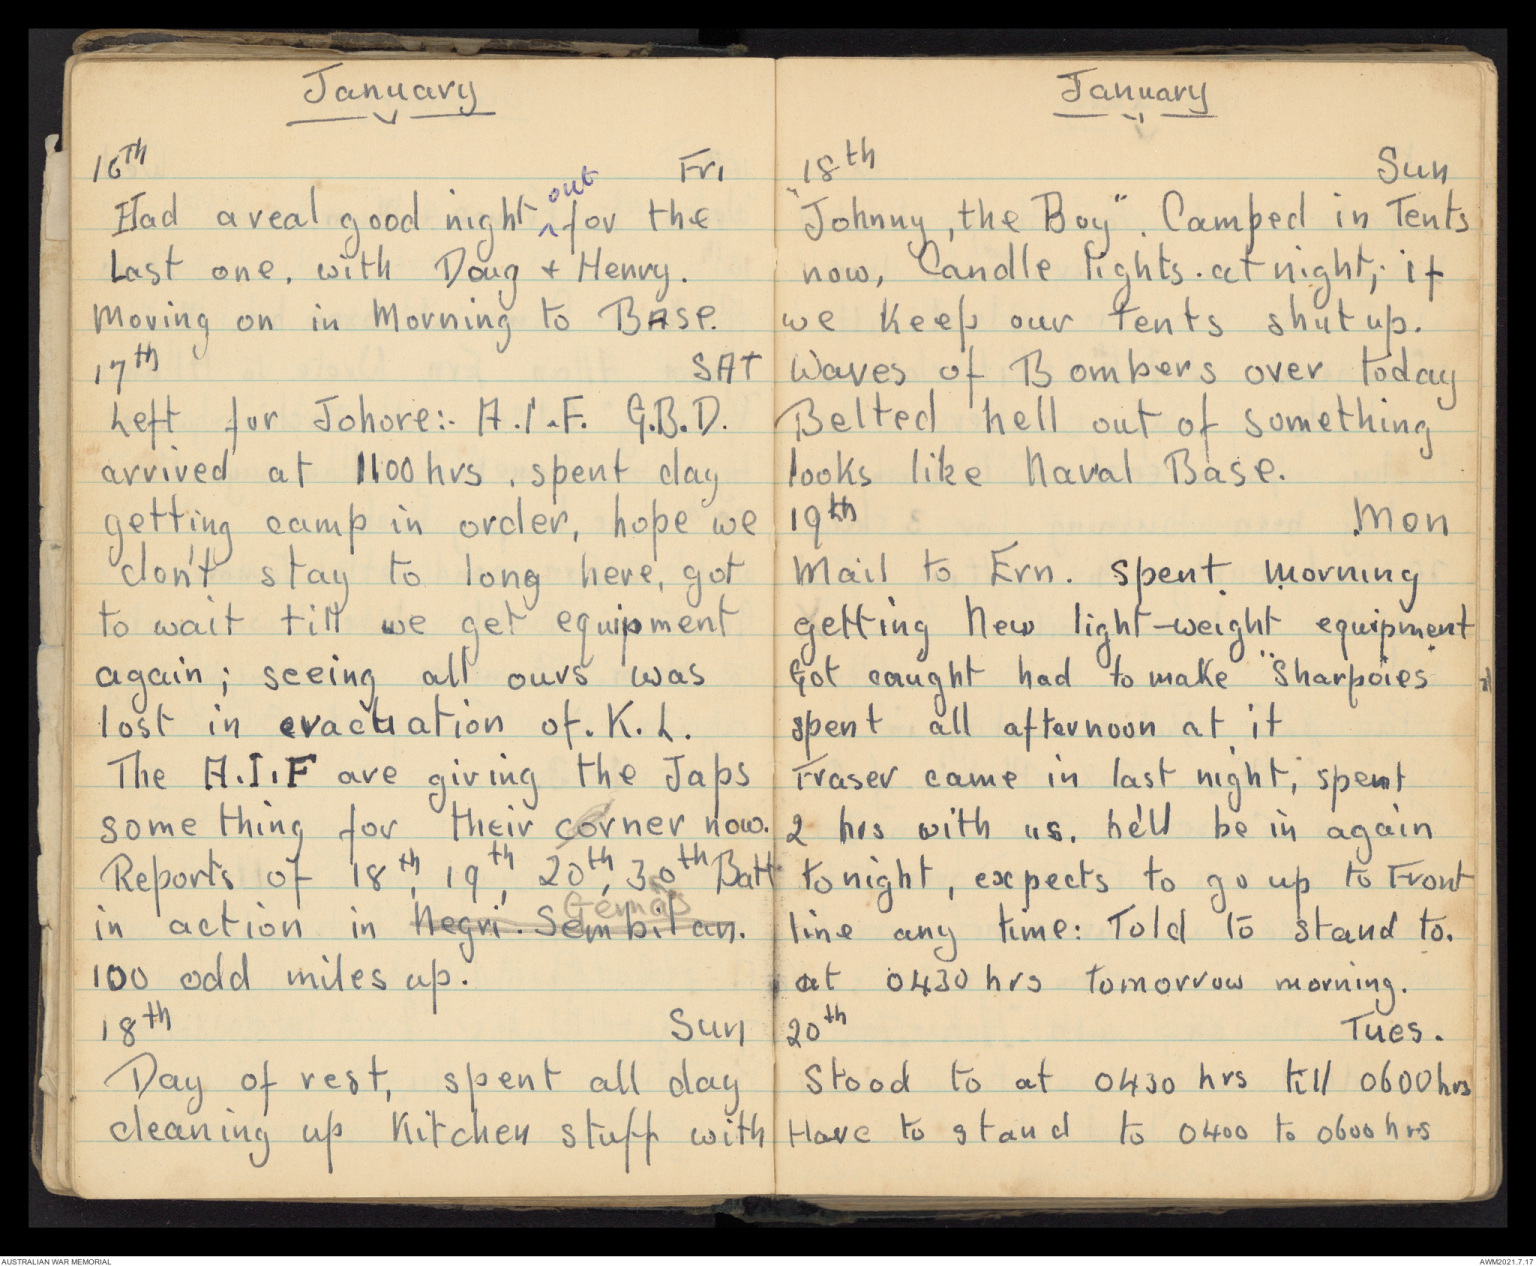 January
16th Fri
Had a real good night out for the
Last one, with Doug + Henry.
Moving on in Morning to Base.
17th SAT
Left for Johore:- A.I.F. G.B.D.
arrived at 1100 hrs, spent day
getting camp in order, hope we
don't stay to long here, got
to wait till we get equipment
again; seeing all ours was
lost in evacuation of. K.L.
The A.I.F are giving the Japs
something for their corner now.
Reports of 18th, 19th, 20th, 30th Batt
Gemas
in action in Negri. Sembilan.
100 odd miles up.
18th Sun
Day of rest, spent all day
cleaning up Kitchen stuff with
January
18th Sun
"Johnny, the Boy". Camped in Tents
now, Candle lights. at night; if
we keep our tents shut up.
Waves of Bombers over today
Belted hell out of something
looks like Naval Base.
19th Mon
Mail to Ern. spent morning
getting New light-weight equipment
Got caught had to make "Sharpoies"
spent all afternoon at it
Fraser came in last night, spent
2 hrs with us. he'll be in again
tonight, expects to go up to Front
line any time: Told to stand to.
at 0430 hrs tomorrow morning.
20th Tues.
Stood to at 0430 hrs till 0600 hrs
Have to stand to 0400 to 0600 hrs
AUSTRALIAN WAR MEMORIAL
AWM2021.7.17